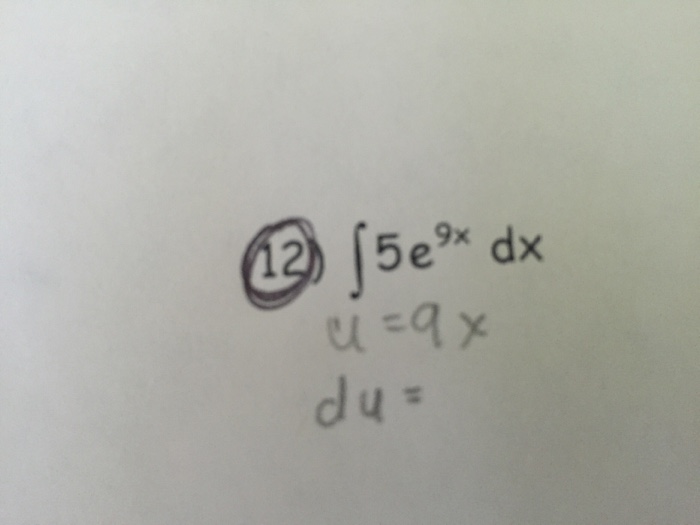 12) ∫5e^{9x} dx
u = 9x
du =